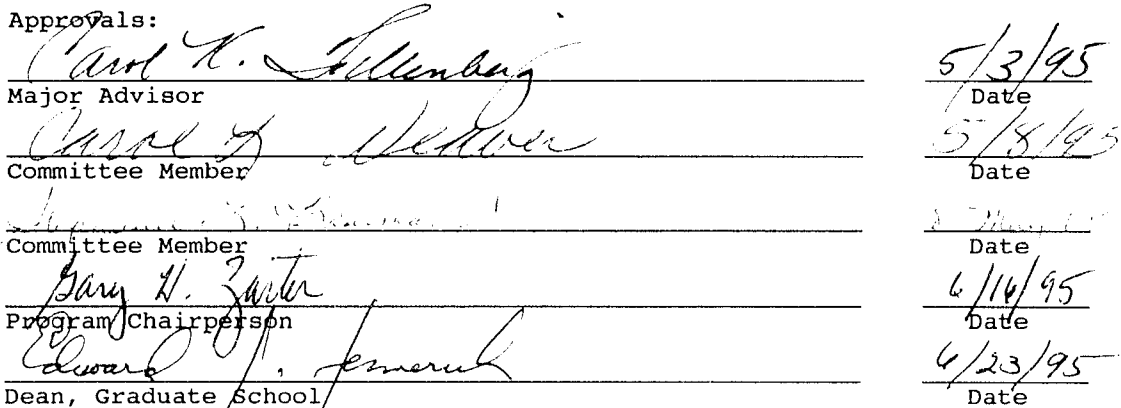 Approvals:
Carol K. 5/3/95
Major Advisor Date
Carol 5/8/95
Committee Member Date
Committee Member Date
Gary H. Zarter 6/16/95
Program Chairperson Date
Edward 6/23/95
Dean, Graduate School Date